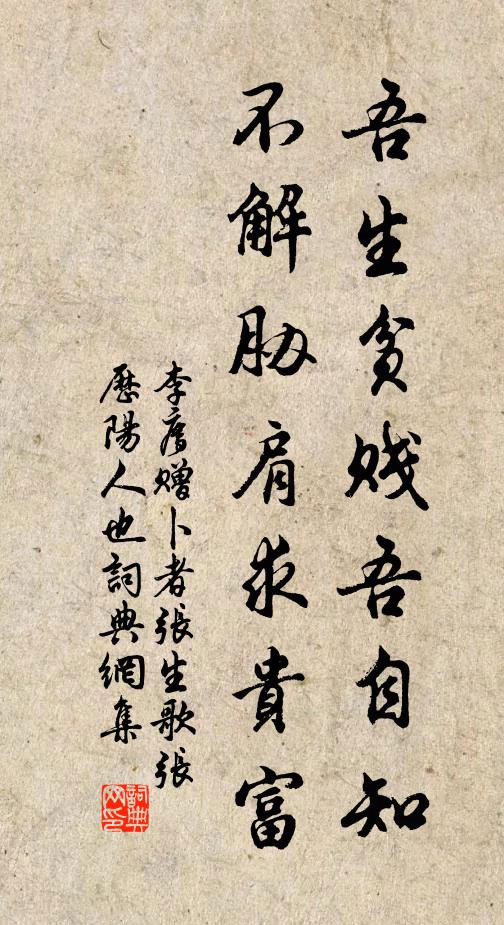 吾生貧賤吾自知
不解胁肩求貴富
李廌赠卜者張生歌張
歷陽人也詞典網集
詞典
网印